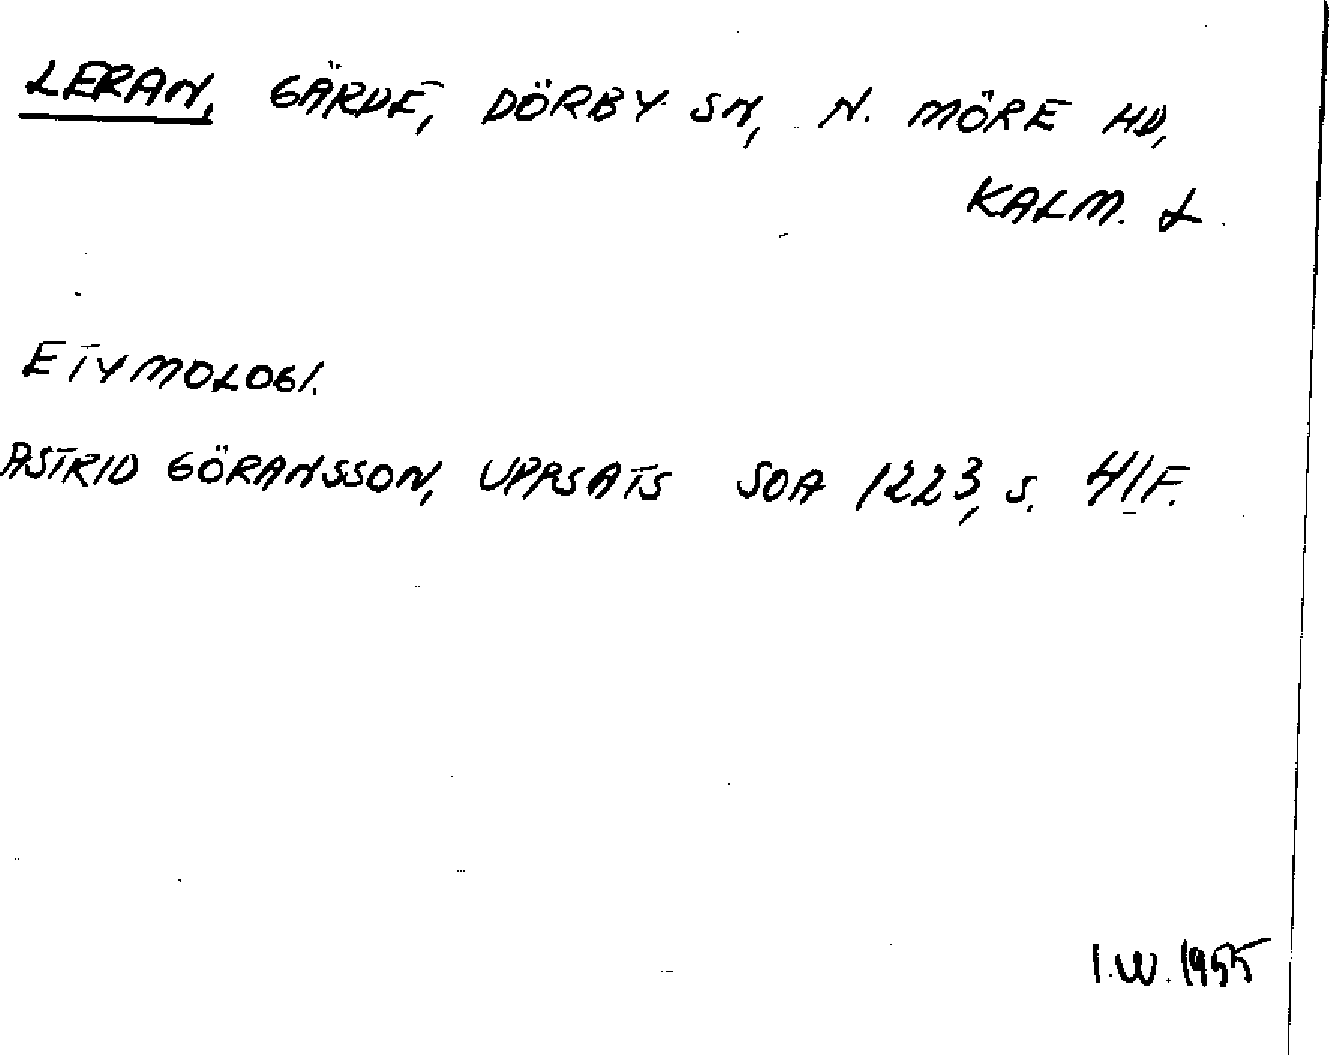 LERAN, GÄRDE, DÖRBY SN, N. MÖRE HD,
KALM. L.
ETYMOLOGI.
ASTRID GÖRANSSON, UPPSATS SOA 1223, S. 41F.
I.W. 1955